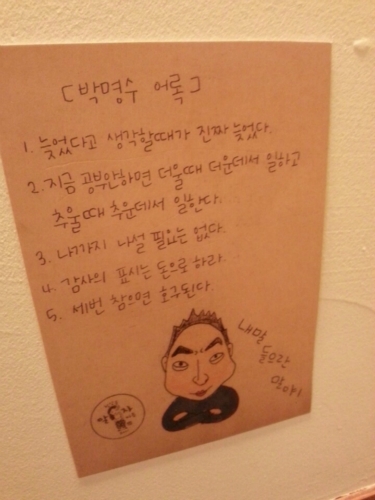 [박명수 어록]
1. 늦었다고 생각할때가 진짜 늦었다.
2. 지금 공부안하면 더울때 더운데서 일하고
추울때 추운데서 일한다.
3. 나까지 나설 필요는 없다.
4. 감사의 표시는 돈으로 하라.
5. 세번 참으면 호구된다.
내말
들으란
말이야